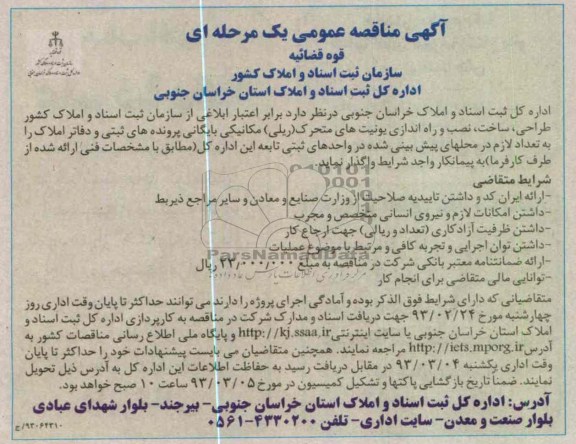 آگهی مناقصه عمومی یک مرحله ای
قوه قضائیه
سازمان ثبت اسناد و املاک کشور
اداره کل ثبت اسناد و املاک استان خراسان جنوبی
اداره کل ثبت اسناد و املاک خراسان جنوبی درنظر دارد برابر اعتبار ابلاغی از سازمان ثبت اسناد و املاک کشور
طراحی، ساخت، نصب و راه اندازی یونیت های متحرک(ریلی) مکانیکی بایگانی پرونده های ثبتی و دفاتر املاک را
به تعداد لازم در محلهای پیش بینی شده در واحدهای ثبتی تابعه این اداره کل(مطابق با مشخصات فنی ارائه شده از
طرف کارفرما)به پیمانکار واجد شرایط واگذار نماید.
شرایط متقاضی
-ارائه ایران کد و داشتن تاییدیه صلاحیت از وزارت صنایع و معادن و سایر مراجع ذیربط
-داشتن امکانات لازم و نیروی انسانی متخصص و مجرب
-داشتن ظرفیت آزاد کاری (تعداد و ریالی) جهت ارجاع کار
-داشتن توان اجرایی و تجربه کافی و مرتبط با موضوع عملیات
-ارائه ضمانتنامه معتبر بانکی شرکت در مناقصه به مبلغ ۲۲/۰۰۰/۰۰۰ ریال
-توانایی مالی متقاضی برای انجام کار
متقاضیانی که دارای شرایط فوق الذکر بوده و آمادگی اجرای پروژه را دارند می توانند حداکثر تا پایان وقت اداری روز
چهارشنبه مورخ ۹۳/۰۲/۲۴ جهت دریافت اسناد و مدارک شرکت در مناقصه به کارپردازی اداره کل ثبت اسناد و
املاک استان خراسان جنوبی یا سایت اینترنتی http://kj.ssaa.ir و پایگاه ملی اطلاع رسانی مناقصات کشور به
آدرس http://iets.mporg.ir مراجعه نمایند. همچنین متقاضیان می بایست پیشنهادات خود را حداکثر تا پایان
وقت اداری یکشنبه ۹۳/۰۳/۰۴ در مقابل دریافت رسید به حفاظت اطلاعات این اداره کل به آدرس ذیل تحویل
نمایند. ضمناً تاریخ بازگشایی پاکتها و تشکیل کمیسیون در مورخ ۹۳/۰۳/۰۵ ساعت ۱۰ صبح خواهد بود.
آدرس: اداره کل ثبت اسناد و املاک استان خراسان جنوبی- بیرجند- بلوار شهدای عبادی
بلوار صنعت و معدن- سایت اداری- تلفن ۴۳۳۰۲۰۰-۰۵۶۱
ParsNamadData